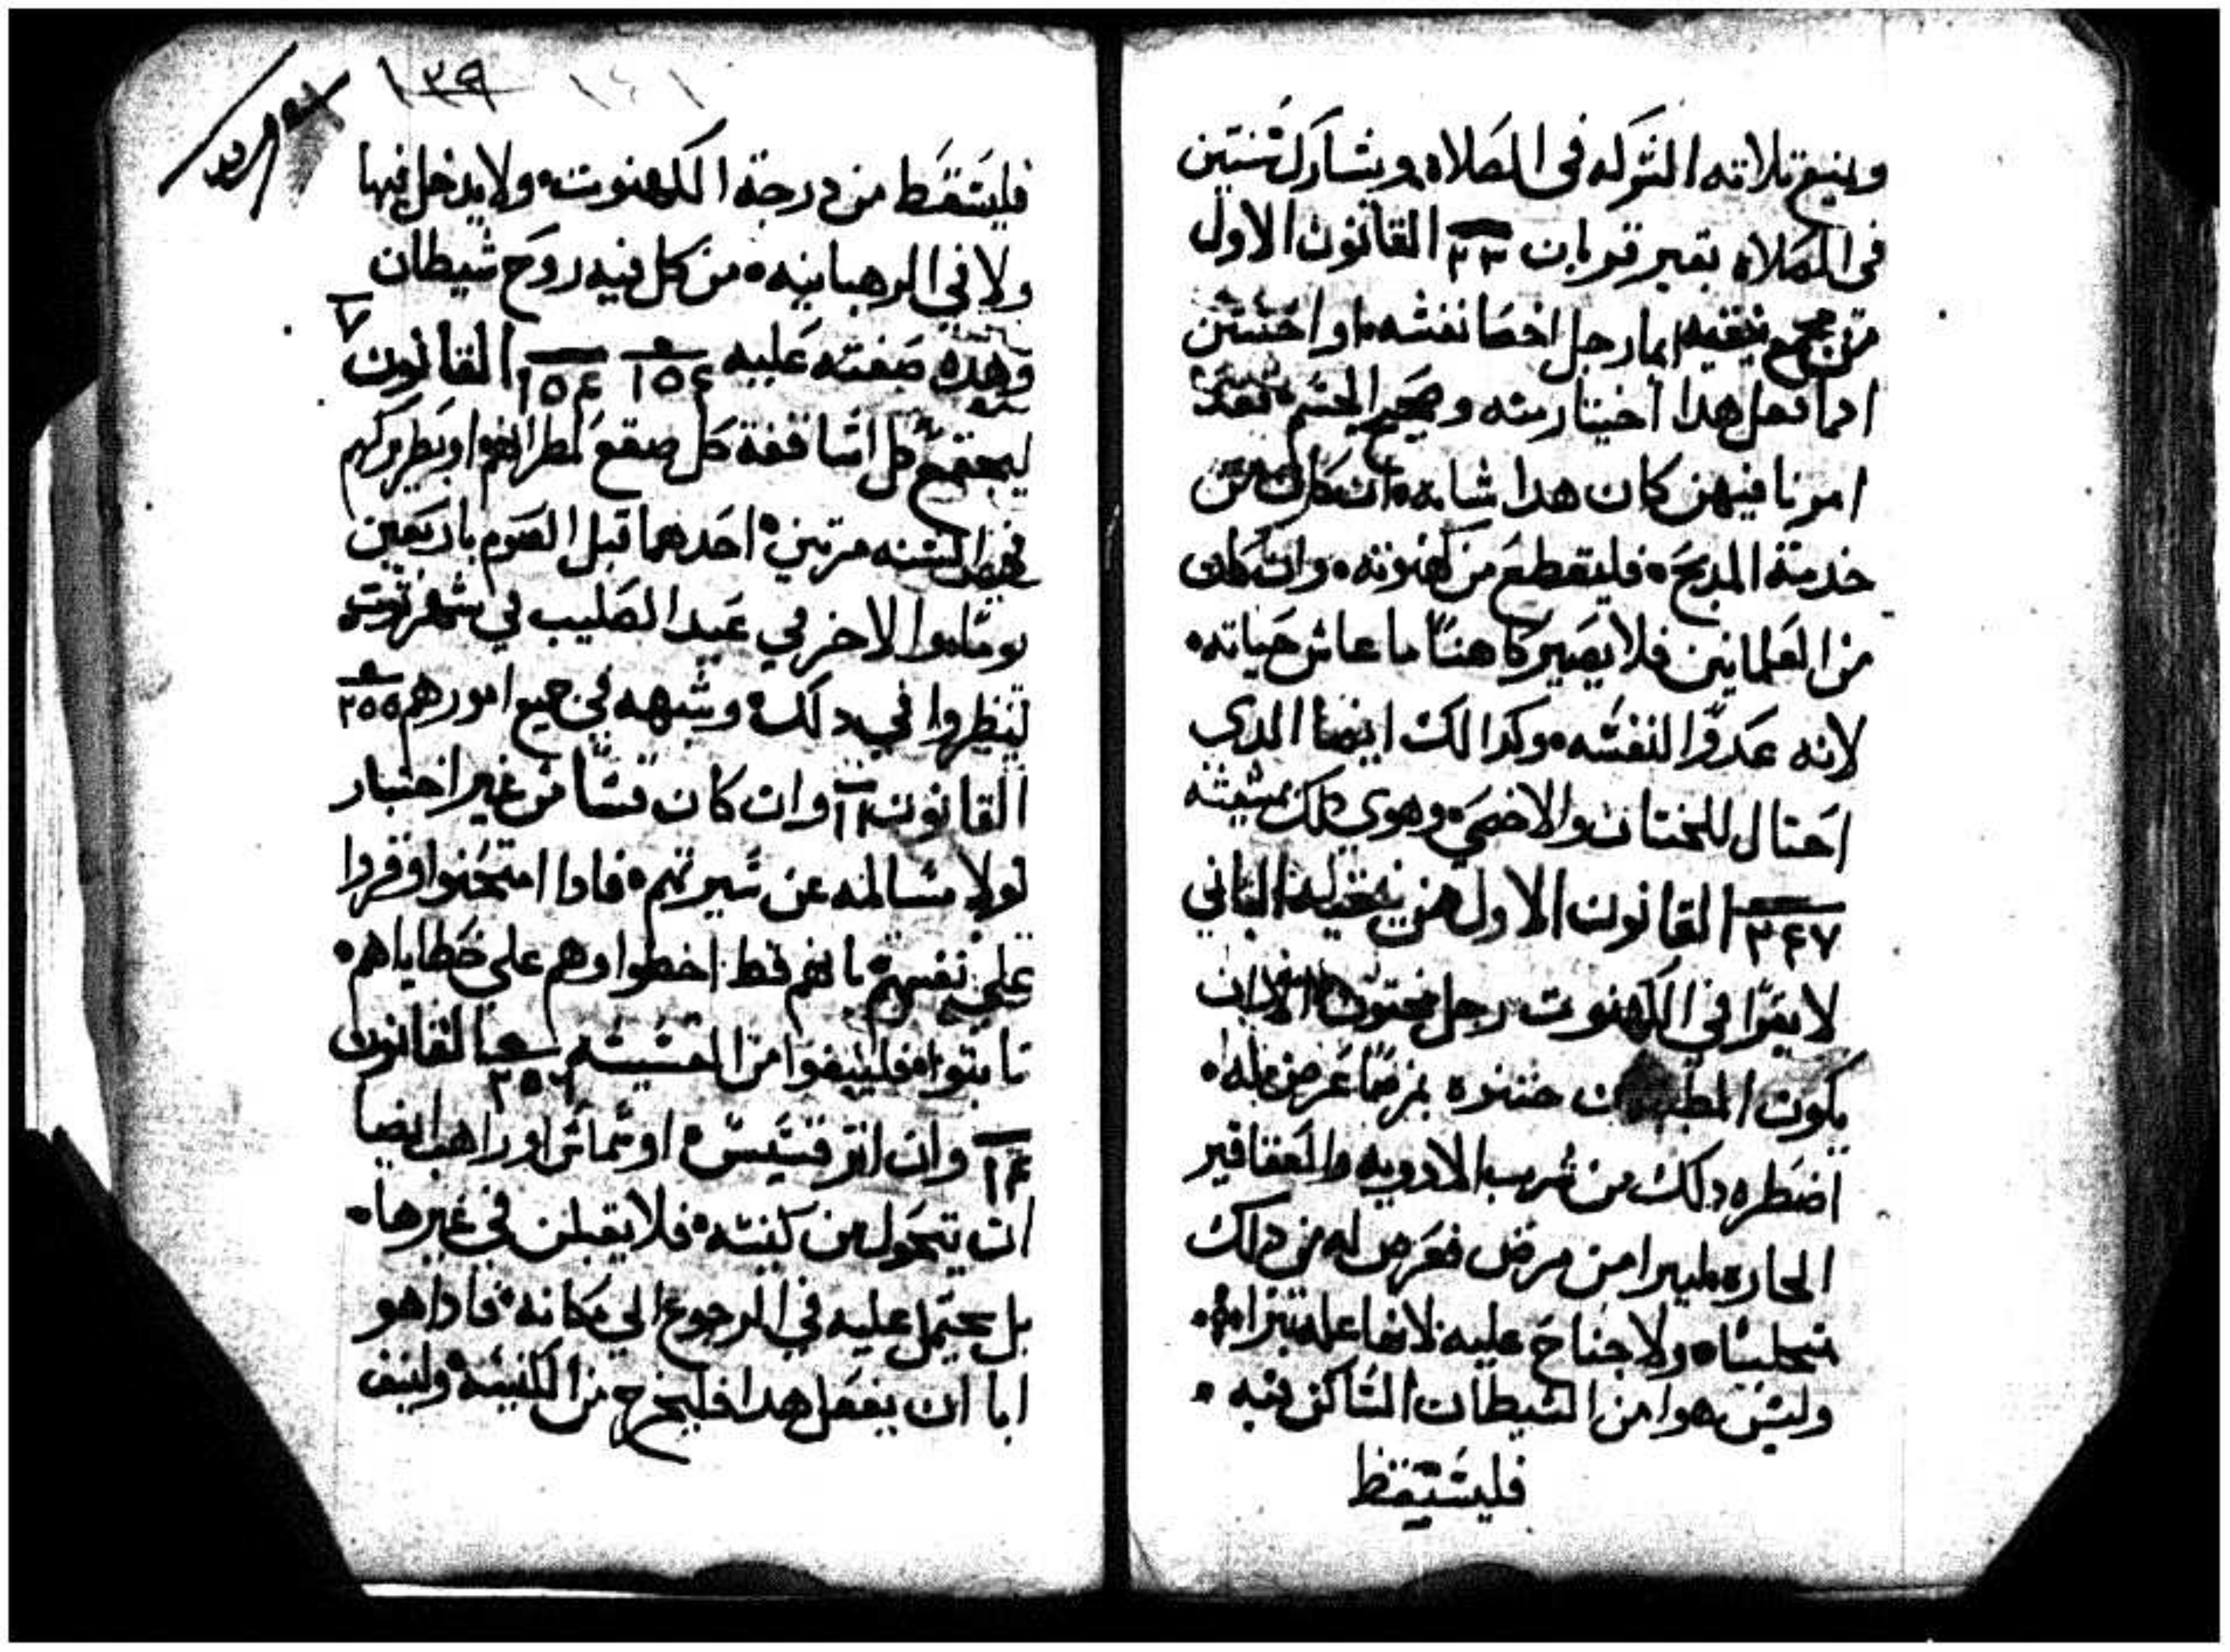 ويمنع تلاته الشركه فى الصلاه ويشارك سنتين
فى الصلاه بغير قربان القانون الاول
من مجمع نيقيه ايما رجل اخصا نفسه او اختتن
ادا فعل هدا اختيار منه وصحيح الجسم فقد
امرنا فيمن كان هدا شانه ان كان من
خدمة المدبح فليقطع من كهنوته وان كان
من العلمانيين فلا يصير كاهنًا ما عاش حياته
لانه عدوًا لنفسه وكدالك ايضا الدي
احتال للختان والاخصي وهوي دلك بمشيئته
٢٤٧ القانون الاول من نيقيه الثاني
لا يقرا في الكهنوت رجل مختون الا ان
يكون ختنوه بمرضًا عرض له
اضطره دلك من شرب الادويه والعقاقير
الحاره من مرض فعرض له من دلك
ولا جناح عليه لانها عله تبرا منه
وليس هوا من الشيطان الساكن فيه
فليسقط
١٣٩ ١٤١
فليسقط من درجة الكهنوت ولا يدخل فيها
ولا في الرهبانيه من كل فيه روح شيطان
وهده صفته عليه ١٥٤ ١٥٤ القانون ٧
ليجتمع كل اساقفة كل صقع لمطرانهم او بطريركهم
في السنه مرتين احدهما قبل الصوم باربعين
يومًا والاخر في عيد الصليب في شهر توت
لينظروا في دلك وشبهه في جميع امورهم ٢٥٥
القانون ١٢ وان كان قسًا من غير اختبار
لولا مسالمه عن سيرتهم فادا امتحنوا وقروا
علي نفسهم بانهم قط اخطوا وهم علي خطاياهم
تابتوا فلينفوا من القسيسه ٢٥٦ القانون
١٤ وان اتر قسيس او شماس او راهب ايضا
ان يتحول من كنيسته فلا يقبلن في غيرها
بل يحتمل عليه في الرجوع الي مكانه فادا هو
ابا ان يفعل هدا فليخرج من الكنيسه ولينف